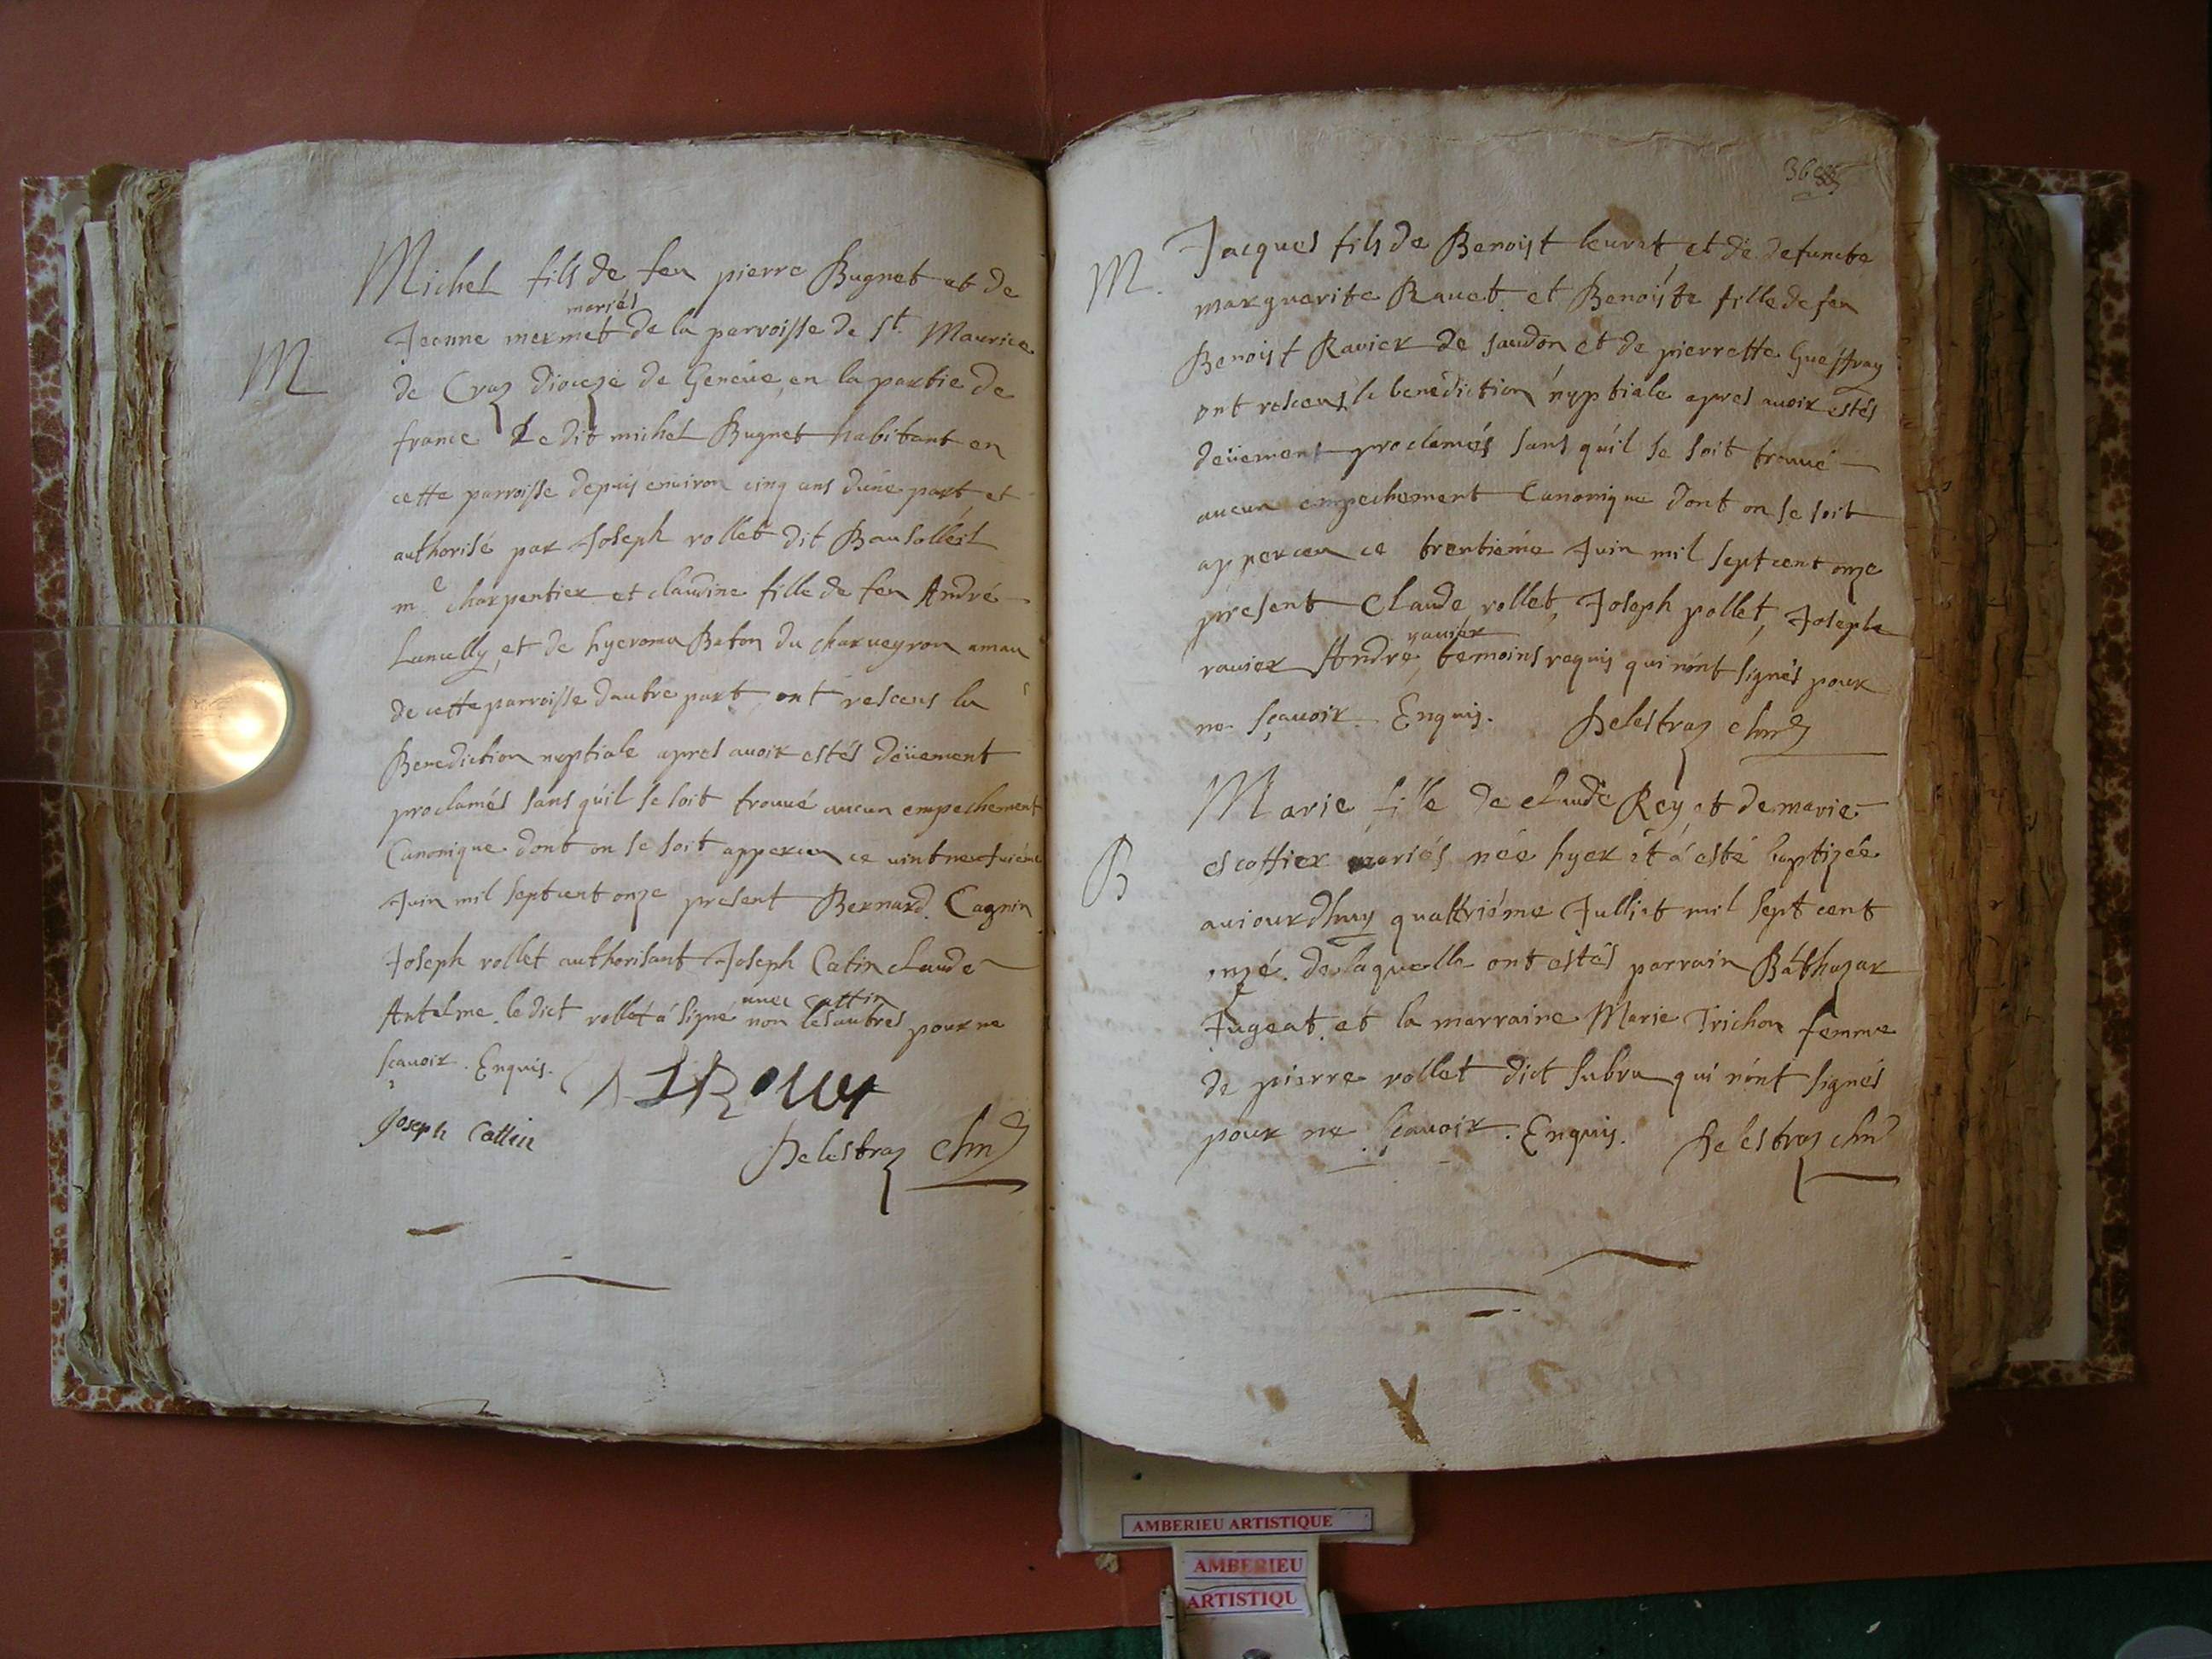 Michel fils de feu pierre Bugnet et de
mariés
Jeanne mermet de la parroisse de St. Maurice
M
de Craz dioceze de Geneue, en la partie de
france Le dit michel Bugnet habitant en
cette parroisse depuis enuiron cinq ans d'une part et
authorisé par Joseph rollet dit Bausolleil
me charpentier et claudine fille de feu André
et de hyeroma Baton du charueyron aman
de cette parroisse dautre part, ont resceus la
Benediction nuptiale apres auoir estés deüement
proclamés sans qu'il se soit trouué aucun empechement
Canonique dont on se soit apperceu ce vintneufuiéme
Juin mil septcent onze present Bernard Cagnin
Joseph rollet authorisant Joseph Catin claude
auec cattin
Antelme. le dict rollet a signé non les autres pour ne
sçauoir. Enquis.
Rollet
Joseph Cattin
Delestraz
36
M. Jacques fils de Benoist leurat et de defuncte
marguerite Rauet et Benoiste fille de feu
Benoist Rauier de saudon et de pierrette Gueffray
ont resceus la benediction nuptiale apres auoir estés
deüement proclamés sans qu'il se soit trouué
aucun empechement Canonique dont on se soit
apperceu ce trentiéme Juin mil septcent onze
present Claude rollet, Joseph pollet, Joseph
rauier
rauier André, temoins requis qui n'ont signés pour
ne sçauoir. Enquis. Delestraz
Marie fille de claude Rey et de marie
B
escoffier mariés née hyer et a esté baptizée
auiourdhuy quattriéme Julliet mil sept cent
onze. de laquelle ont estés parrain Balthazar
Jugeat. et la marraine Marie Trichon femme
de pierre rollet dict subra qui n'ont signés
pour ne sçauoir. Enquis. Delestraz
AMBERIEU ARTISTIQUE
AMBERIEU
ARTISTIQU